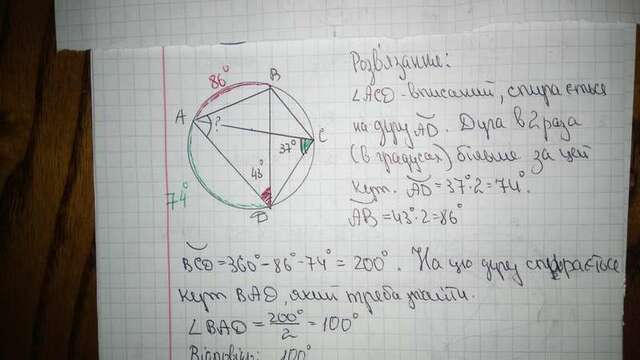 Розв'язання:
86°
B
∠ACD - вписаний, спирається
A
?
на дугу AD. Дуга в 2 раза
C
37°
(в градусах) більше за цей
43°
кут. AD = 37°·2 = 74°.
74°
D
AB = 43°·2 = 86°
BCD = 360° - 86° - 74° = 200°. На цю дугу спирається
кут BAD, який треба знайти.
∠BAD = 200°/2 = 100°
Відповідь: 100°